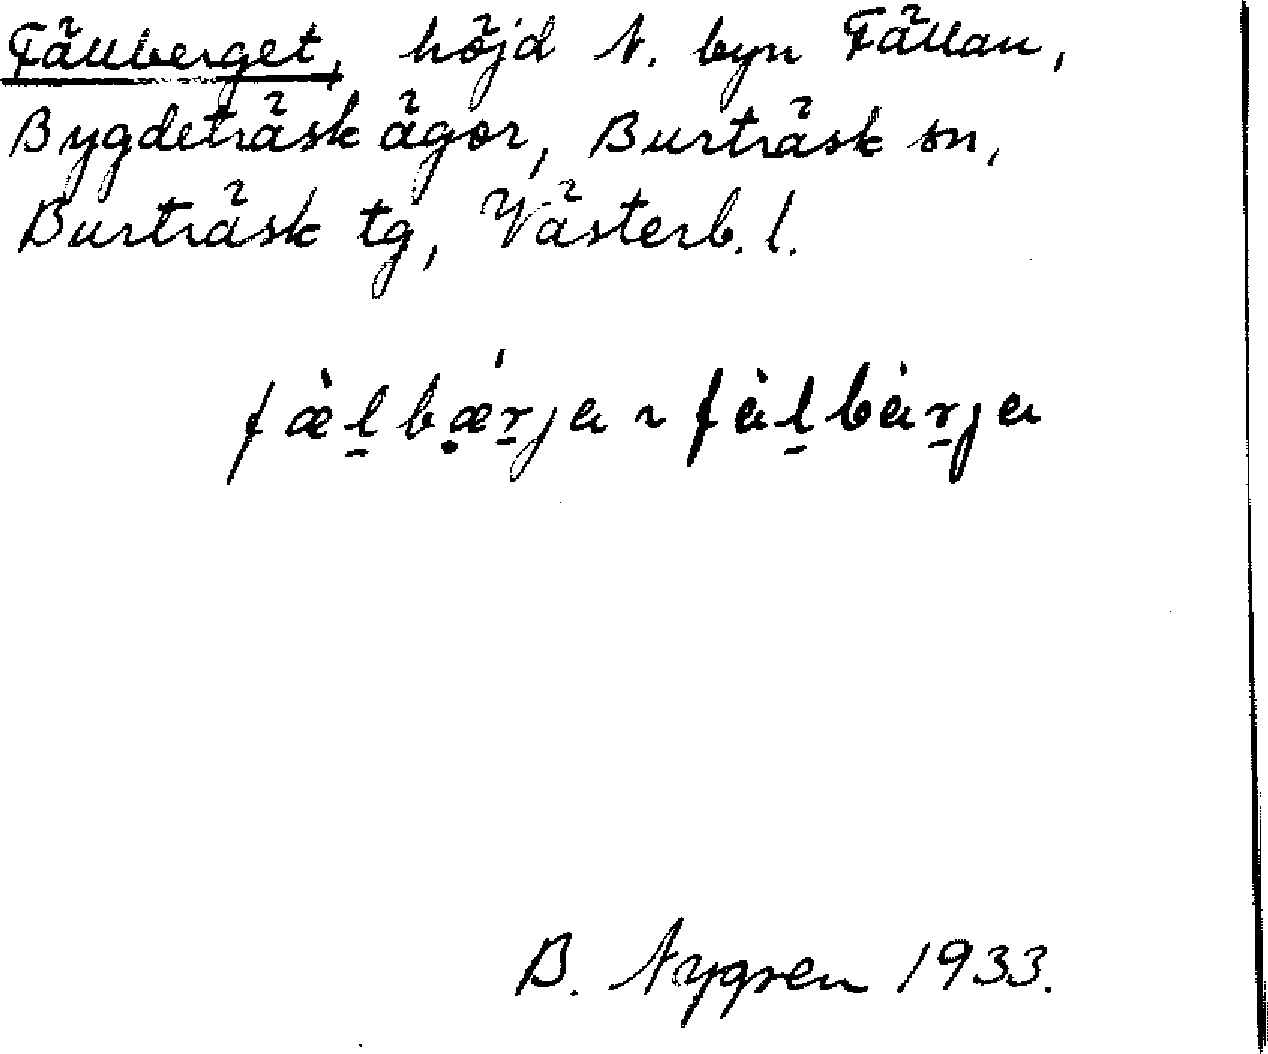 Fällberget, höjd N. byn Fällan,
Bygdeträsk ägor, Burträsk sn,
Burträsk tg, Västerb. l.
fæ̀l̠bǽ̣r̠ja ~ fàl̠bàr̠ja
B. Nygren 1933.